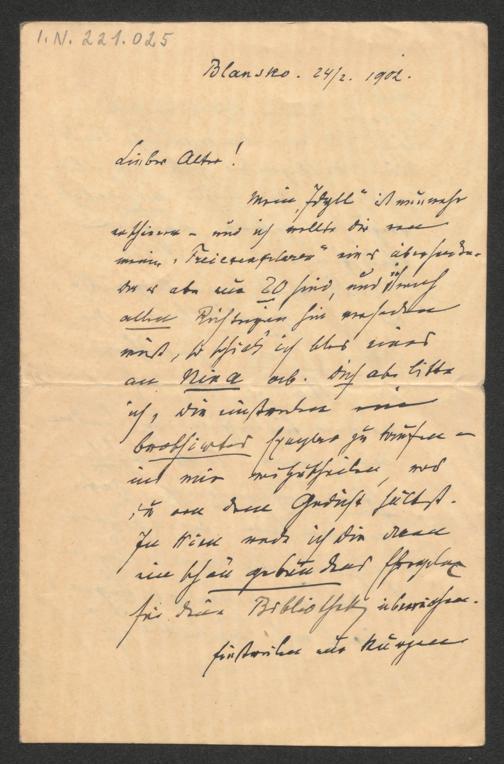 I.N. 221.025
Blansko. 24/2. 1902.
Lieber Alter!
Mein „Idyll" ist nunmehr
erschienen – und ich wollte dir von
meinen „Freiexemplaren" eines übersenden.
Da es aber nur 20 sind, und ich nach
allen Richtungen hin versenden
muß, so schick' ich blos eines
an Nina ab. Dich aber bitte
ich, dir einstweilen ein
broshirtes Exemplar zu kaufen –
und mir mitzutheilen, was
du von dem Gedicht hältst.
In Wien werde ich dir dann
ein schön gebundenes Exemplar
für deine Bibliothek überreichen.
Einstweilen nur